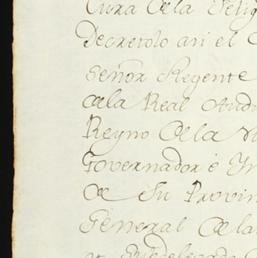 Cura de la Feli
Decretolo asi el
Señor Regente
de la Real Aud
Reyno de la N
Governador è Yn
de Su Provin
General de la
y Subdelegado